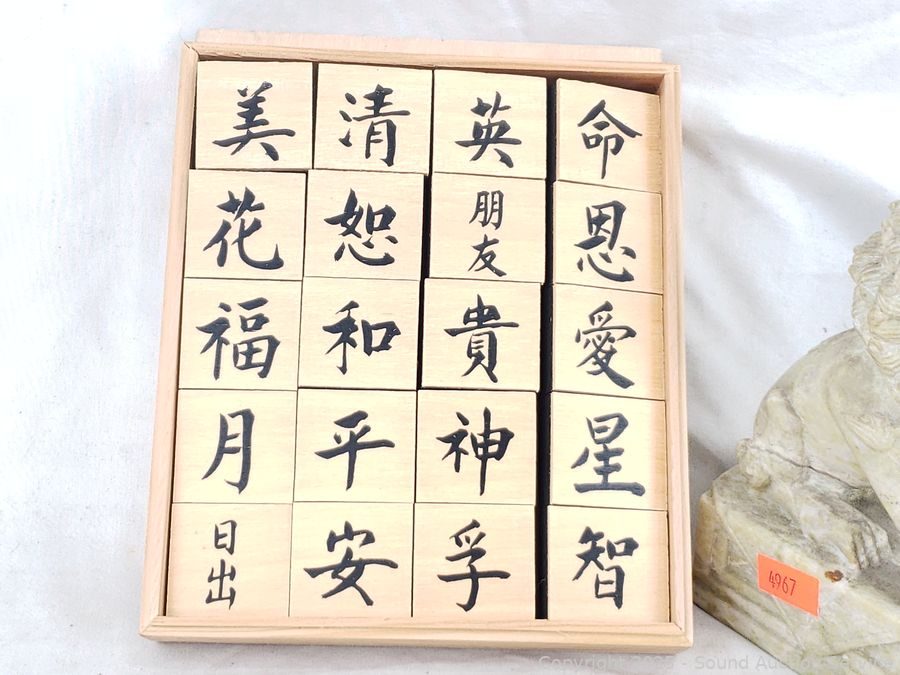 美 清 英 命
花 恕 朋友 恩
福 和 貴 愛
月 平 神 星
日出 安 孚 智
4967
Copyright 2023 - Sound Auction Service